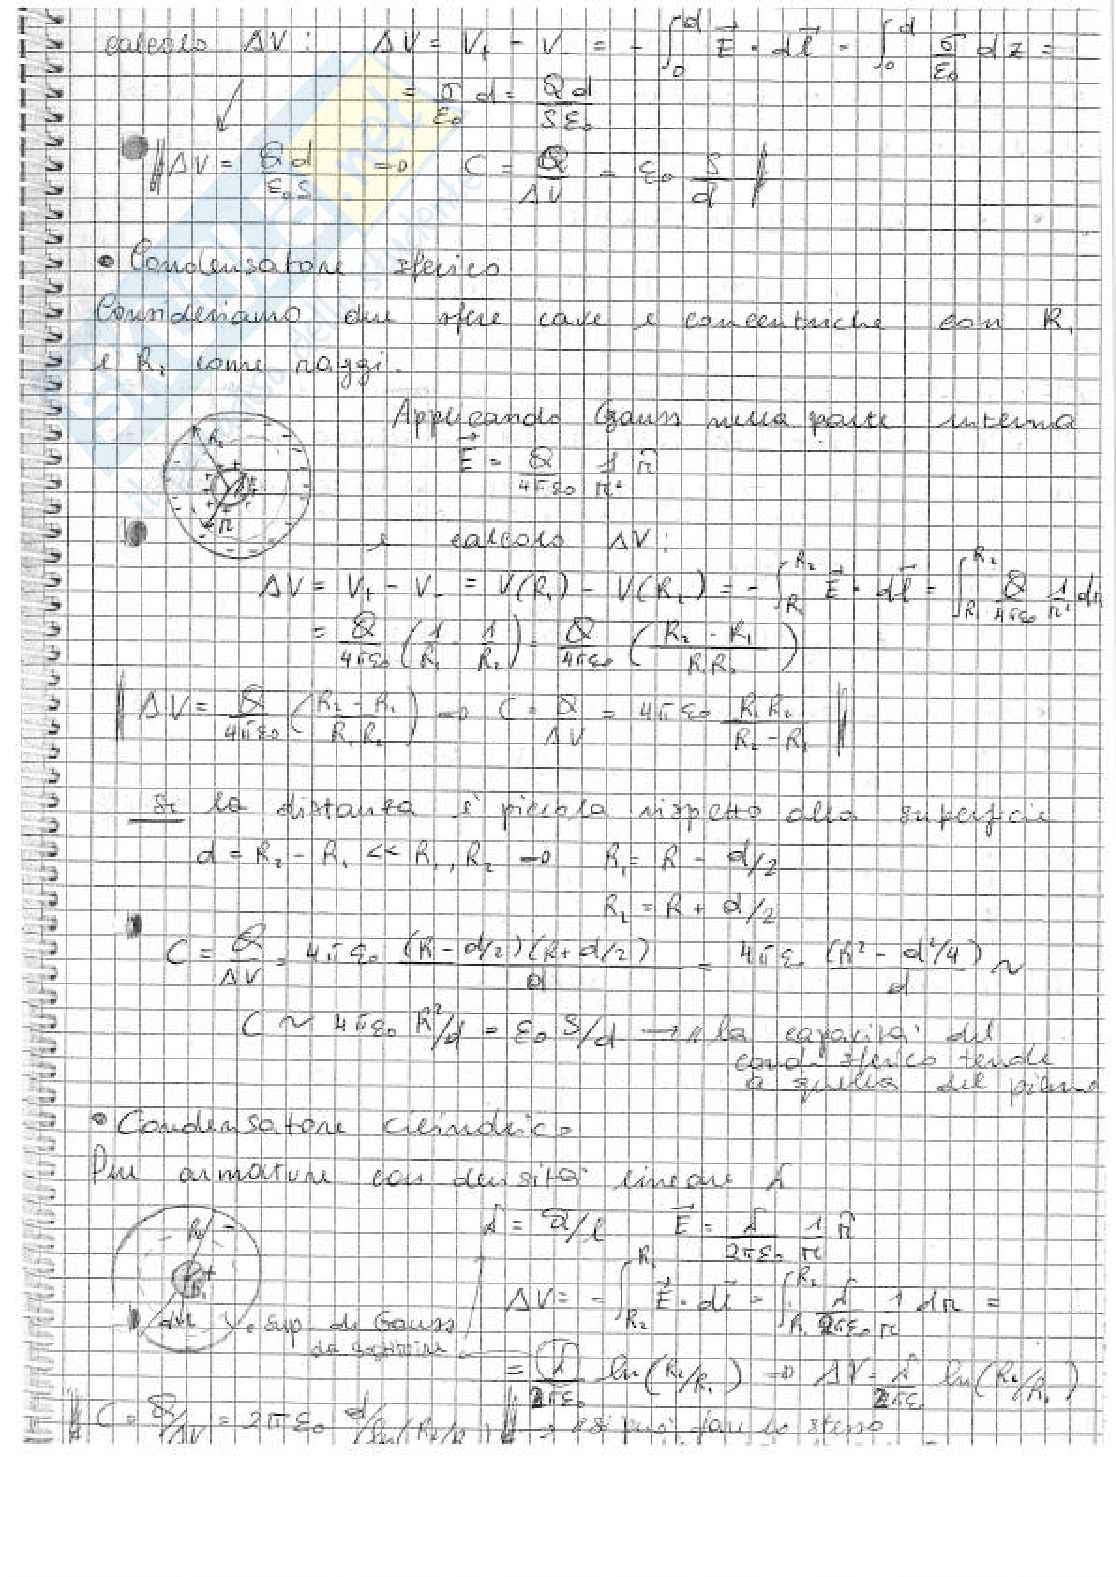 calcolo ΔV : ΔV = V₊ - V₋ = - ∫₀ᵈ E⃗ · dl⃗ = ∫₀ᵈ σ/ε₀ dz =
= σ/ε₀ d = Qd/Sε₀
ΔV = Qd/ε₀S → C = Q/ΔV = ε₀ S/d
• Condensatore sferico
Consideriamo due sfere cave e concentriche con R₁
e R₂ come raggi.
Applicando Gauss nella parte interna
E⃗ = Q/4πε₀ 1/r² r̂
e calcolo ΔV:
ΔV = V₊ - V₋ = V(R₁) - V(R₂) = - ∫_R₁^R₂ E⃗ · dl⃗ = ∫_R₁^R₂ Q/4πε₀ 1/r² dr
= Q/4πε₀ (1/R₁ - 1/R₂) = Q/4πε₀ (R₂ - R₁/R₁R₂)
ΔV = Q/4πε₀ (R₂ - R₁/R₁R₂) → C = Q/ΔV = 4πε₀ R₁R₂/R₂ - R₁
Se la distanza è piccola rispetto alla superficie
d = R₂ - R₁ << R₁, R₂ → R₁ = R - d/2
R₂ = R + d/2
C = Q/ΔV = 4πε₀ (R - d/2)(R + d/2)/d = 4πε₀ (R² - d²/4)/d ~
C ~ 4πε₀ R²/d = ε₀ S/d → " la capacità del
cond. sferico tende
a quella del piano
• Condensatore cilindrico
Due armature con densità lineare λ
λ = Q/l E⃗ = λ/2πε₀ 1/r r̂
ΔV = - ∫_R₂^R₁ E⃗ · dl⃗ = ∫_R₁^R₂ λ/2πε₀ 1/r dr =
sup. di Gauss
= λ/2πε₀ ln(R₂/R₁) → ΔV = λ/2πε₀ ln(R₂/R₁)
C = Q/ΔV = 2πε₀ d/ln(R₂/R₁) → si può fare lo stesso